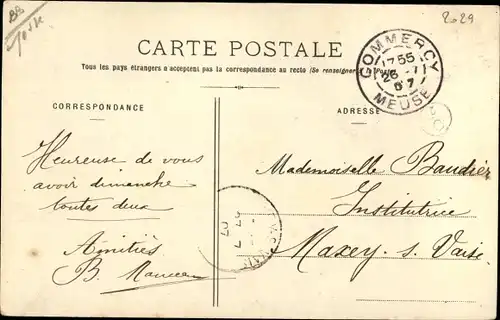 2029
CARTE POSTALE
Tous les pays étrangers n'acceptent pas la correspondance au recto (Se renseigner à la Poste)
COMMERCY
17 55
26 - 7
07
MEUSE
CORRESPONDANCE
ADRESSE
Heureuse de vous
avoir dimanche
toutes deux
Amitiés
B.
Mademoiselle Baudier
Institutrice
Maxey. s. Vaise